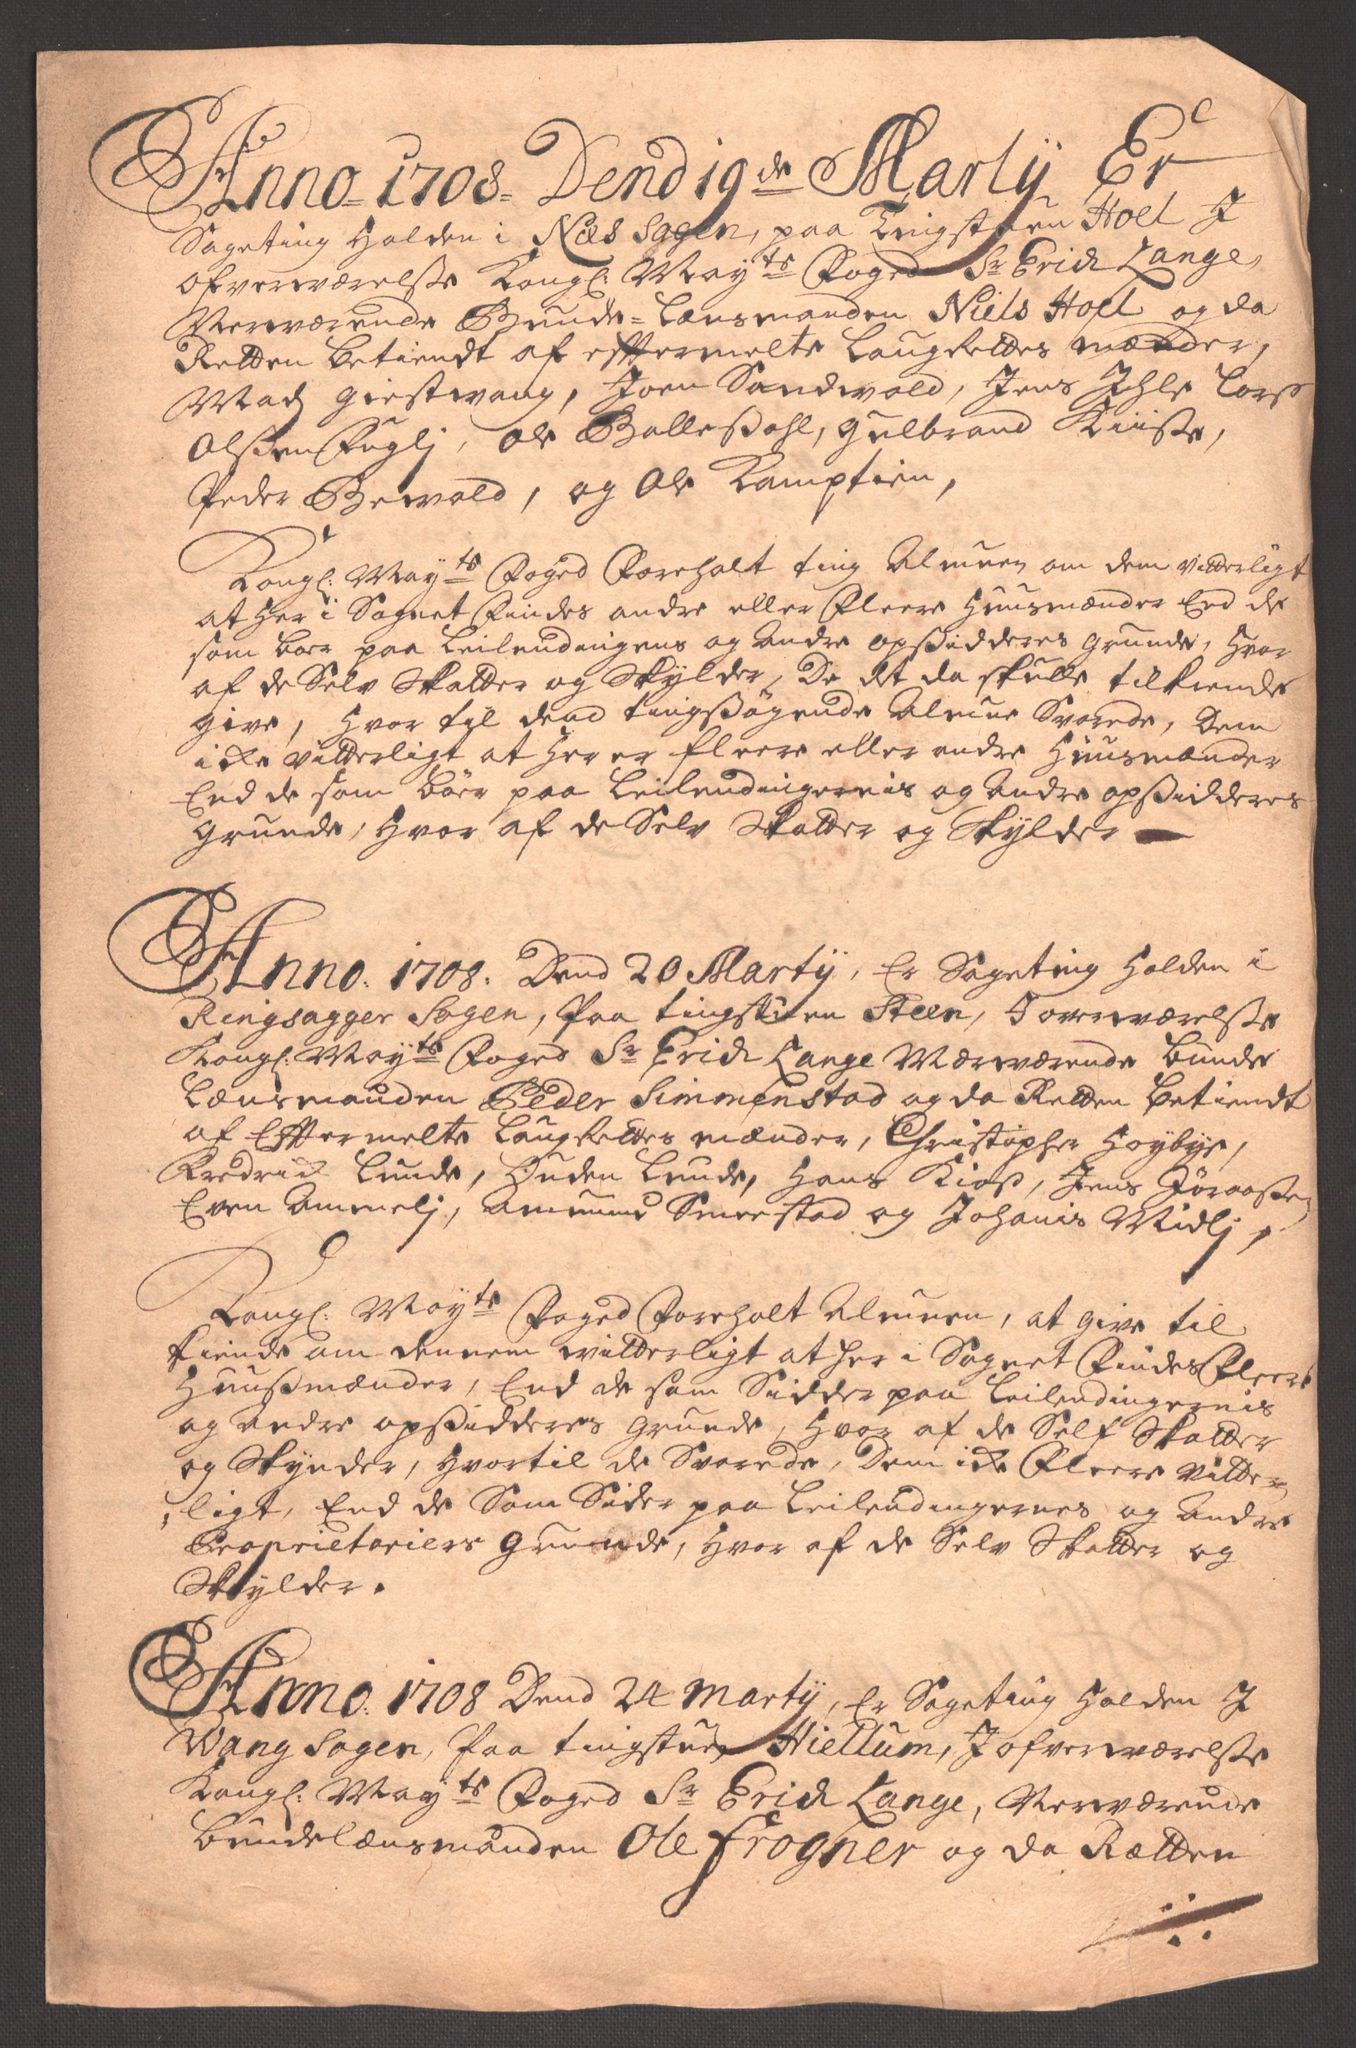 Anno 1708. Dend 19de Martÿ Er
Sageting Holden i Næs Sogen, paa Tingstuen Hoel I
ofverwærelse Kongl: Maÿts Foged Sr Erich Lange,
Nerwærende Bunde-Lænsmanden Niels Hoel og da
Retten betiendt af effermelte LaugRettes mænder,
Madz Giestwang, Joen Sandwold, Jens Ihle Lorß
Olßen Fuglj, Ole Balleßahl, Gulbrand Kiiße,
Peder Bewold, og Ole Kamptien,
Kongl: Maÿts Foged Foreholt ting Almuen om dem vitterligt
at her i Sognet Findes andre eller Fleere Huusmænder End de
som boer paa Leilendingens og andre opßidderes grunde, Hvor
af de Selv Skatter og Skÿlder, De det da skulle tilkiende
give, Hvor til dend tingsøgende Almue Svarede, Dem
icke vitterligt at her er fleere eller andre Huusmænder
End de som boer paa Leilendingernis og andre opßidderes
grunde, Hvor af de Selv Skatter og Skÿlder
Anno. 1708. Dend 20 Martÿ, Er Sageting Holden i
Ringsagger Sogen, paa tingstuen Steen, I overwærelse
Kongl: Maÿts Foged Sr Erich Lange Nærwærende Bunde
Lænsmanden Peder Simmenstad og da Retten betiendt
af Effermelte LaugRettes mænder, Christopher Hoÿbÿe,
Fredrich Lunde, Ouden Lunde, Hans Kioß, Jens Jöraaßen
Even Ammelj, Amund Smeestad og Johanis Midlj,
Kongl: Maÿts Foged Foreholt Almuen, at give til
kiende om dennem witterligt at her i Sognet Findes Fleere
Huußmænder, End de som Sidder paa Leilendingernis
og andre opßidderes grunde, Hvor af de Self Skatter
og Skÿnder, Hvortil de Svarede, Dem icke Fleere vitter
ligt, End de Som Sider paa Leilendingernes og Andre
Proprietariers grunde, Hvor af de Selv Skatter og
Skÿlder.
Anno. 1708 Dend 24 Martÿ, Er Sageting Holden I
Wang Sogen, paa tingstuen Hiellum, I ofverwærelse
Kongl: Maÿts Foged Sr Erich Lange, Nerwærende
bundelænsmanden Ole Frogner og da Rætten